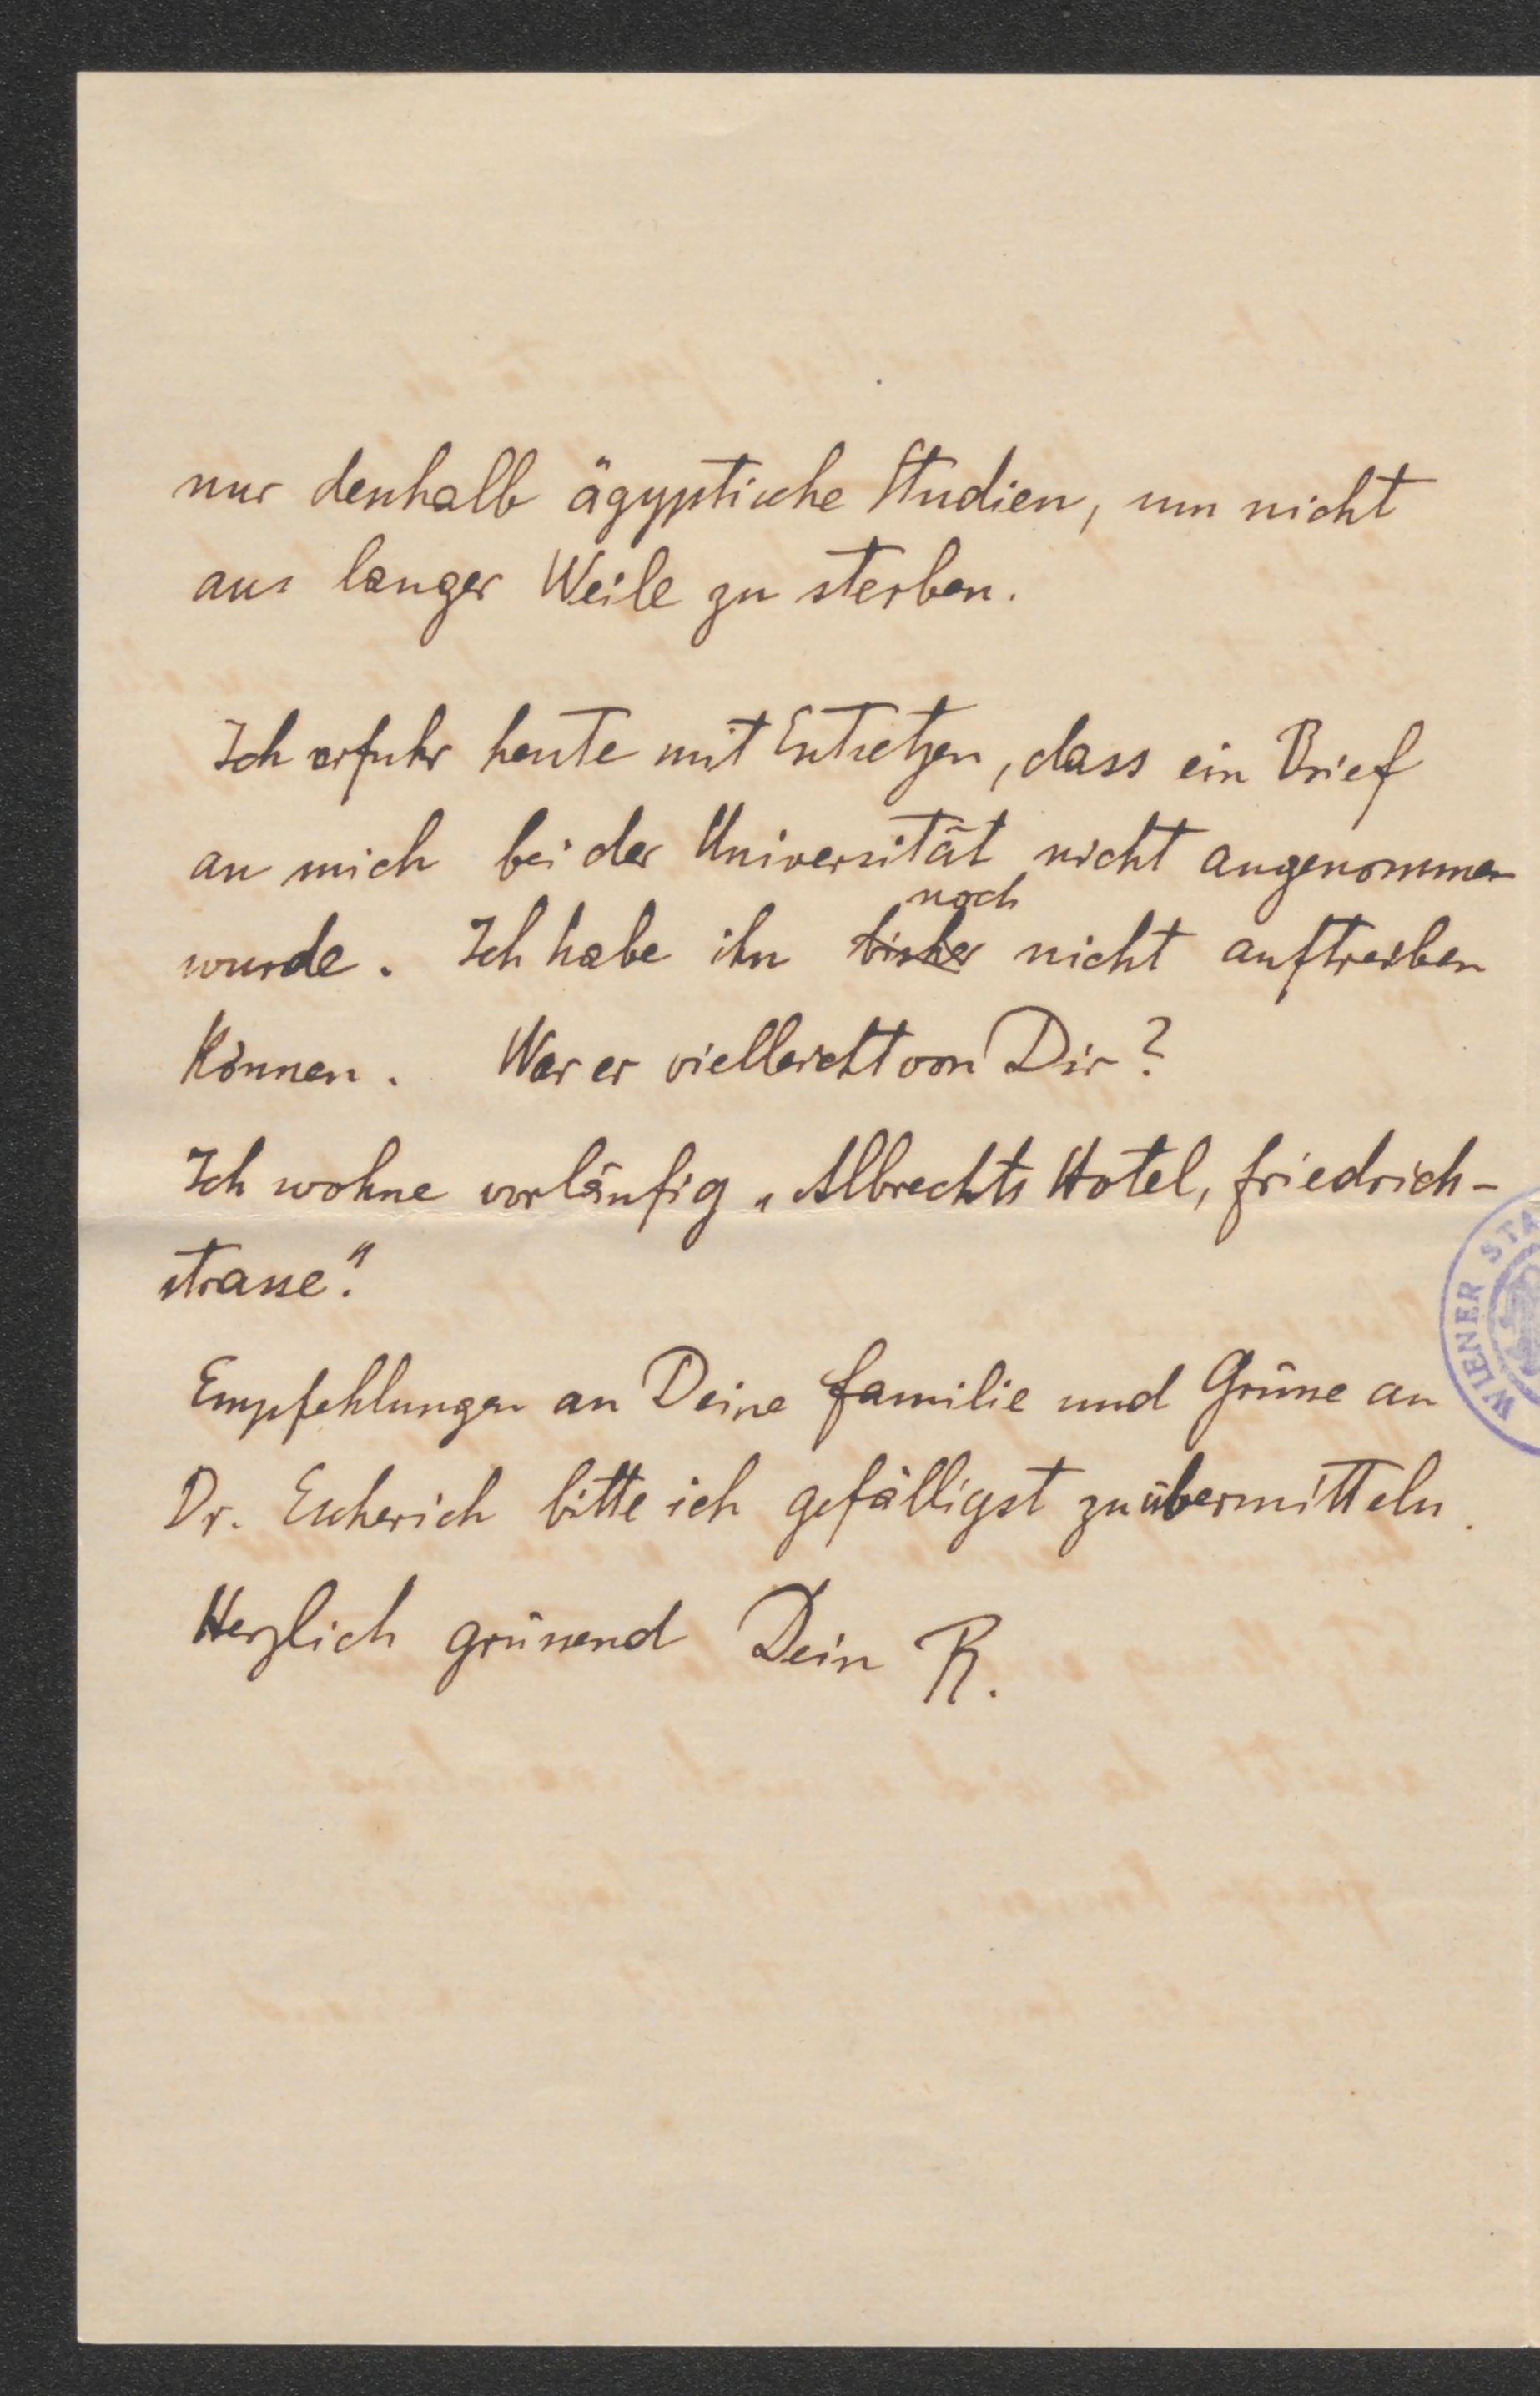 nur desshalb ägyptische Studien, um nicht
aus langer Weile zu sterben.
Ich erfuhr heute mit Entsetzen, dass ein Brief
an mich bei der Universität nicht angenommen
noch
wurde. Ich habe ihn bisher nicht auftreiben
können. War er vielleicht von Dir?
Ich wohne vorläufig „Albrechts Hotel, Friedrich-
strasse".
Empfehlungen an Deine Familie und Grüsse an
Dr. Escherich bitte ich gefälligst zu übermitteln.
Herzlich grüssend Dein R.
WIENER STA